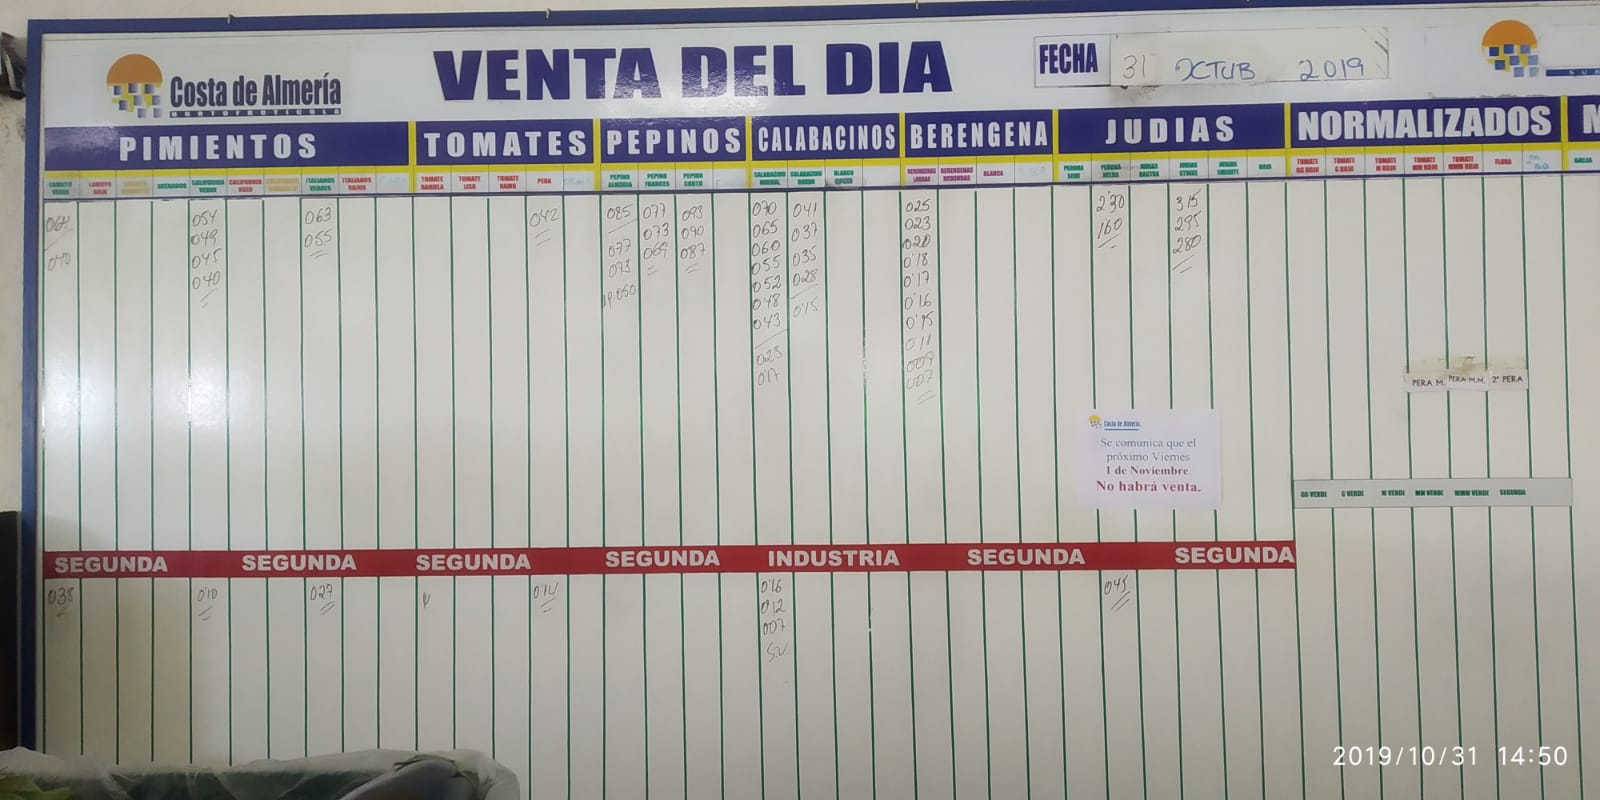 Costa de Almería
HORTOFRUTICOLA
VENTA DEL DIA
FECHA 31 OCTUB 2019
PIMIENTOS TOMATES PEPINOS CALABACINOS BERENGENA JUDIAS NORMALIZADOS
LAMUYO VERDE
LAMUYO ROJO
CALIFORNIA VERDE
CALIFORNIA ROJO
ITALIANOS VERDES
ITALIANOS ROJOS
TOMATE DANIELA
TOMATE LISO
TOMATE RAMA
PERA
PEPINO ALMERIA
PEPINO FRANCES
PEPINO CORTO
CALABACINO NORMAL
CALABACINO GORDO
BLANCO
BERENGENAS LARGAS
BERENGENAS REDONDAS
BLANCA
PERONA SEMI
PERONA
JUDIAS RASTRA
JUDIAS STRIKE
JUDIAS
ROJA
TOMATE GG ROJO
TOMATE G ROJO
TOMATE M ROJO
TOMATE MM ROJO
TOMATE MMM ROJO
FLORA
GALIA
064
040
054
049
045
040
063
055
042
085
077
073
077
073
069
093
090
087
070
065
060
055
052
048
043
023
017
041
037
035
028
015
025
023
020
0'18
0'17
0'16
0'15
011
009
007
2'30
160
315
295
280
PERA M. PERA M.M. 2ª PERA
Costa de Almería
Se comunica que el
próximo Viernes
1 de Noviembre.
No habrá venta.
GG VERDE G VERDE M VERDE MM VERDE MMM VERDE SEGUNDA
SEGUNDA SEGUNDA SEGUNDA SEGUNDA INDUSTRIA SEGUNDA SEGUNDA
038
0'10
027
014
0'16
012
007
S.V
045
2019/10/31 14:50